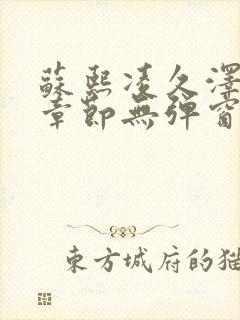 蘇熙凌久澤
章節無彈窗
東方城府的猫